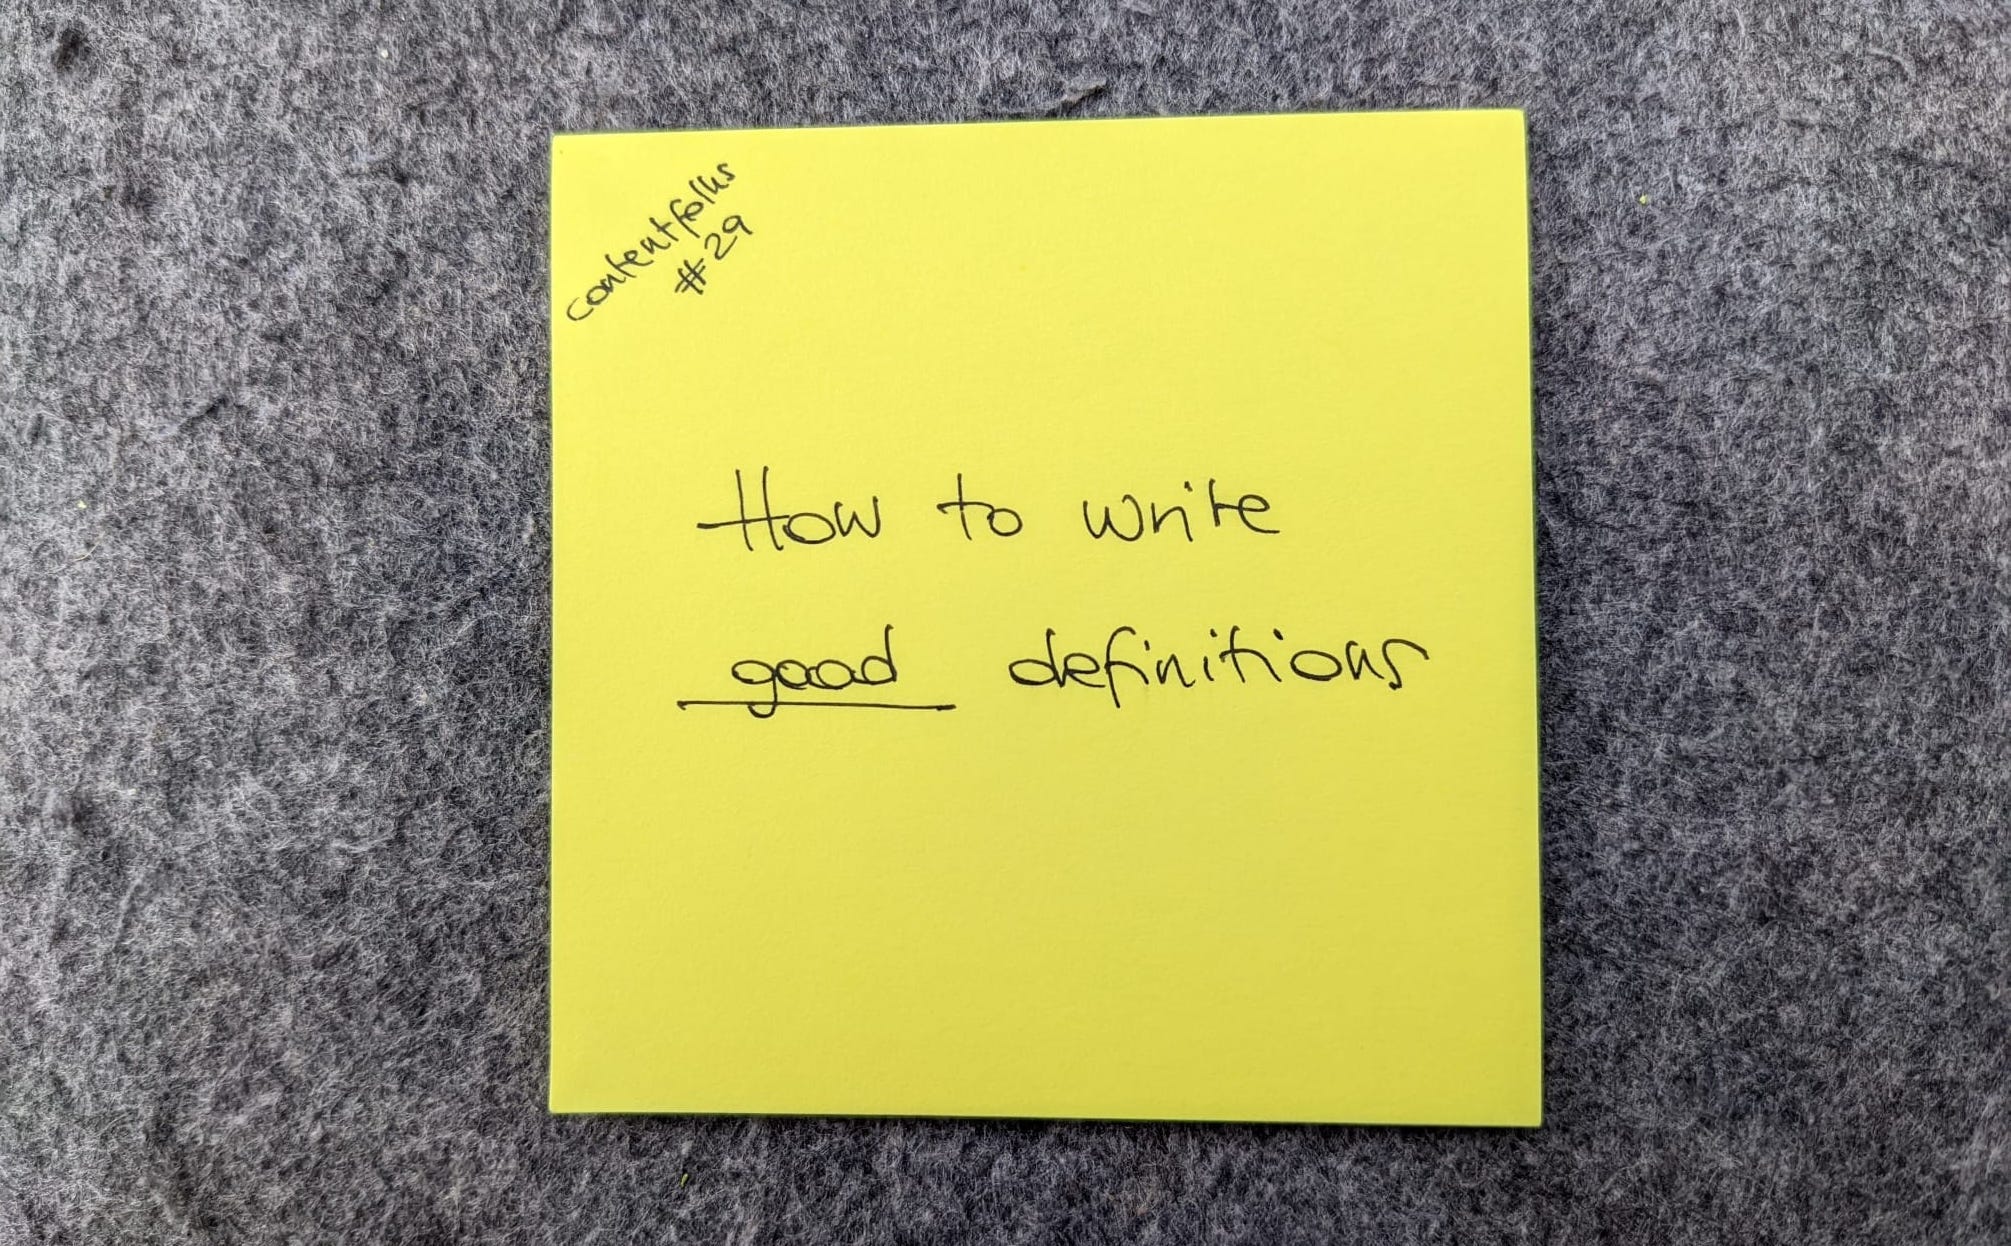 contentfolks
#29
How to write
good definitions